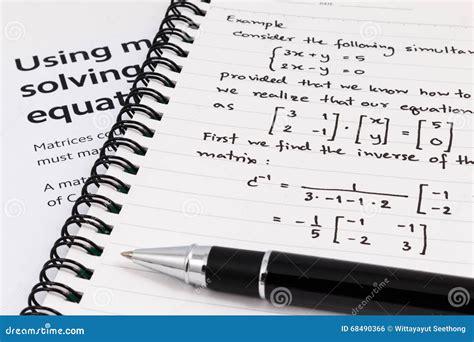 Using m
solving
equat
Matrices co
must mat
A mat
of C
DATE
Example
Consider the following simultan
3x + y = 5
2x - y = 0
provided that we know how to
we realize that our equation
as [3 1] · [x] = [5]
[2 -1] [y] [0]
First we find the inverse of the
matrix :
c⁻¹ = 1 / 3·-1-1·2 [-1
-2
= -1/5 [-1 -1]
[-2 3]
dreamstime.com
ID 68490366 © Wittayayut Seethong